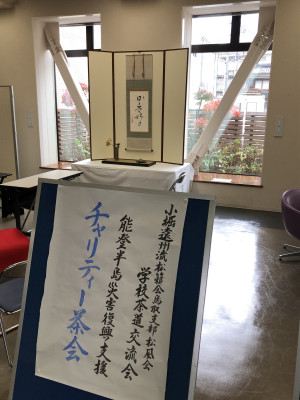 小堀遠州流松籟会鳥取支部松風会
学校茶道交流会
能登半島災害復興支援
チャリティー茶会